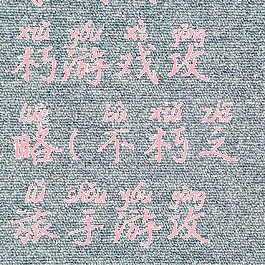 xiǔ yóu xì gōng
朽游戏攻
lüè bù xiǔ zhī
略(不朽之
lǚ shǒu yóu gōng
旅手游攻